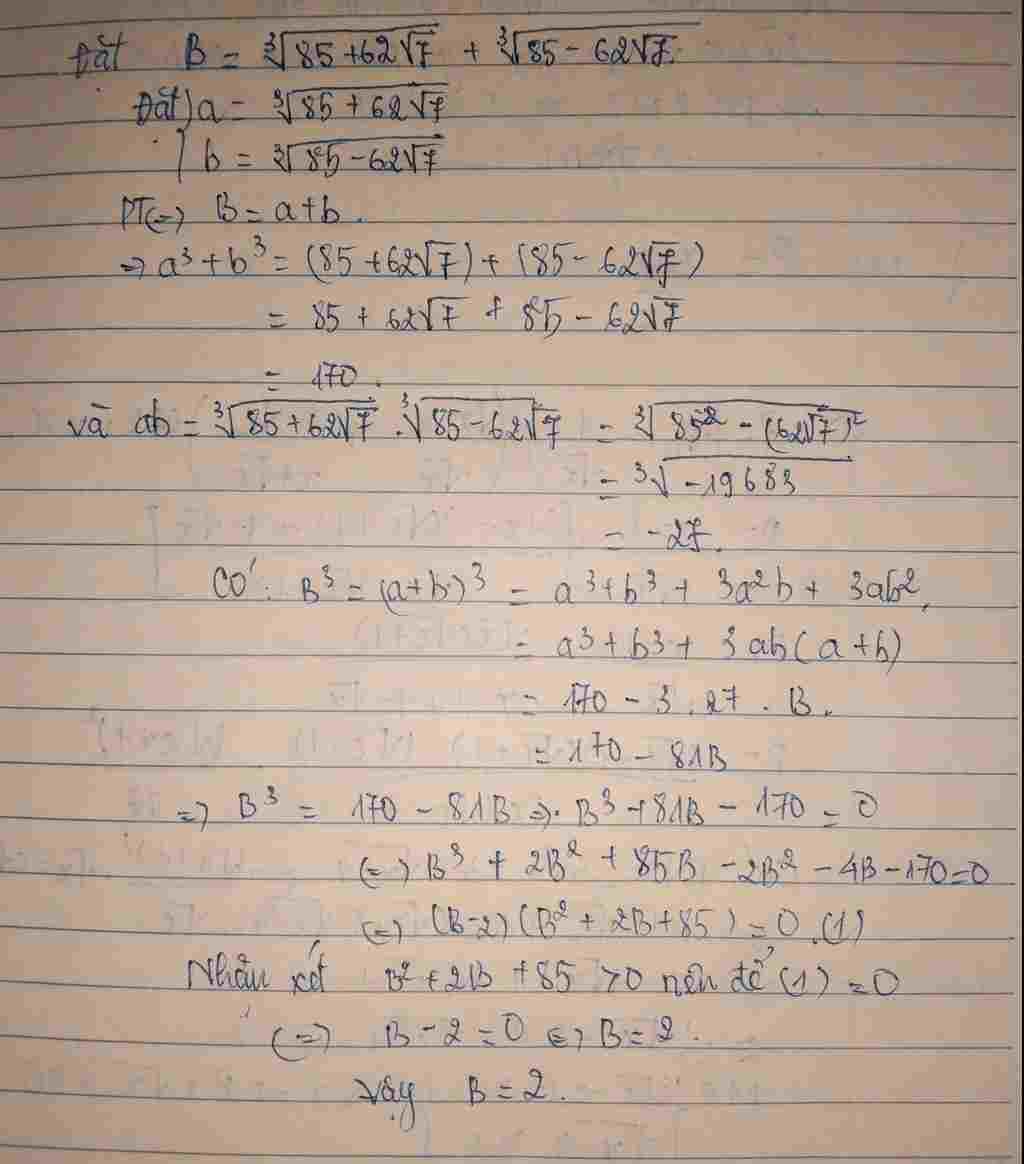 Đặt B = ∛(85+62√7) + ∛(85-62√7)
Đặt) a = ∛(85+62√7)
b = ∛(85-62√7)
PT(=) B = a+b.
=> a³+b³ = (85+62√7)+(85-62√7)
= 85+62√7 + 85-62√7
= 170.
và ab = ∛(85+62√7) . ∛(85-62√7) = ∛(85²-(62√7)²)
= ∛(-19683)
= -27.
CÓ: B³ = (a+b)³ = a³+b³ + 3a²b + 3ab².
= a³+b³+ 3ab(a+b)
= 170 - 3.27.B.
= 170 - 81B
=> B³ = 170 - 81B => B³+81B-170 = 0
(=) B³ + 2B² + 85B - 2B² - 4B - 170=0
(=) (B-2)(B²+2B+85) = 0.(1)
Nhân xét B²+2B+85 >0 nên để (1) =0
(=) B-2=0 (=) B=2.
Vậy B=2.